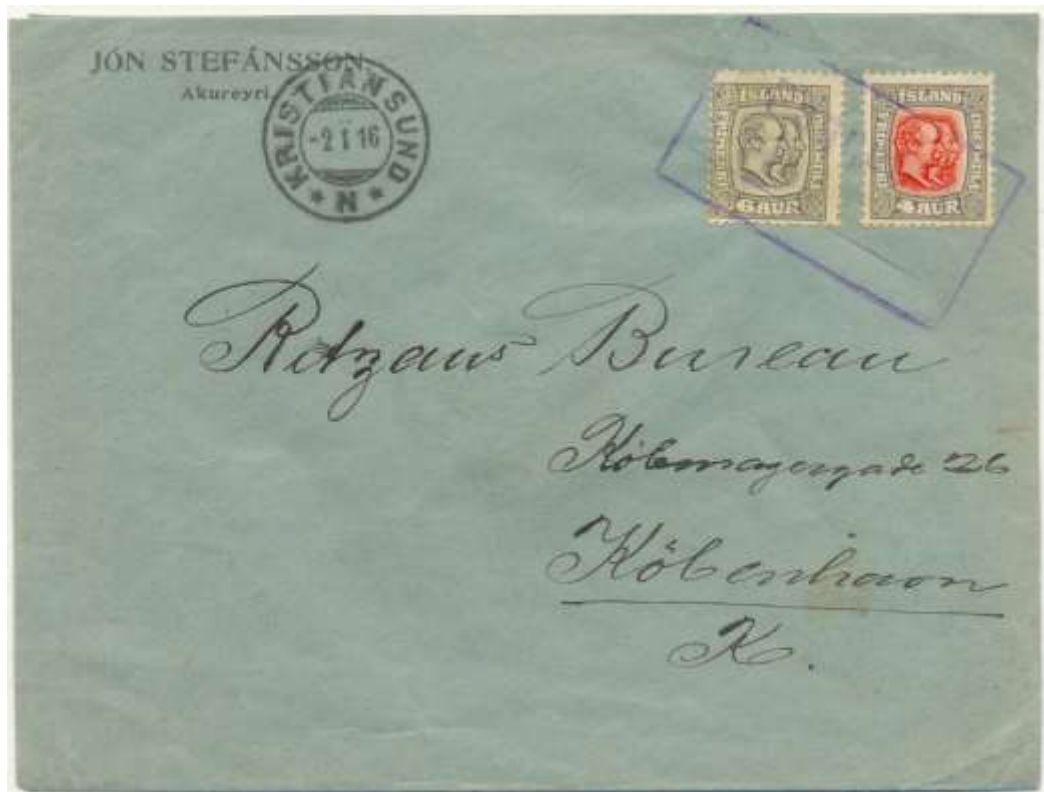 JÓN STEFÁNSSON
Akureyri
KRISTIANSUND
-2 I 16
N
ISLAND
6 AUR
ISLAND
4 AUR
Ritzaus Bureau
Købmagergade 26
København
K.